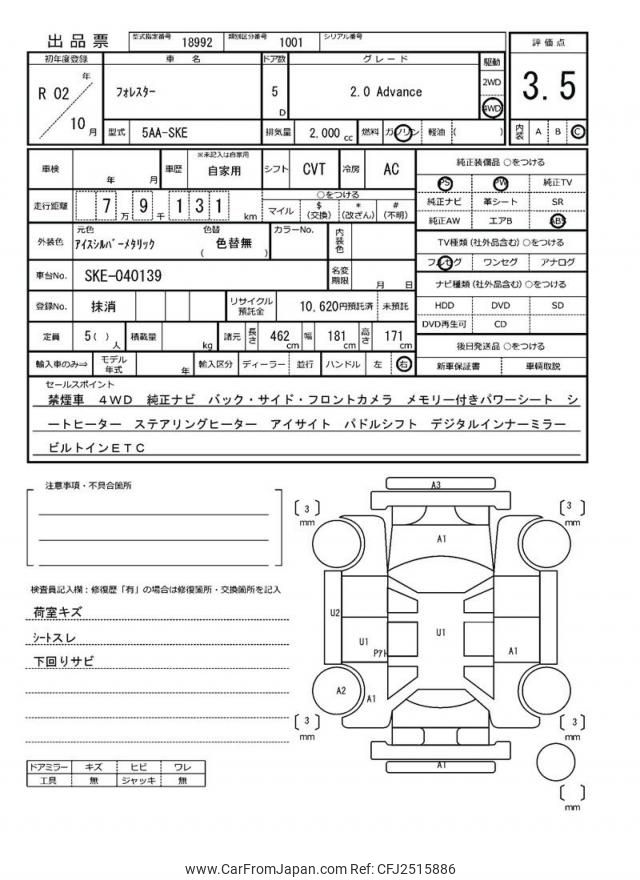 出品票
型式指定番号 18992 類別区分番号 1001 シリアル番号
評価点
3.5
内装 A B C
初年度登録 車名 ドア数 グレード 駆動
R 02 年 10 月
フォレスター 5 D 2.0 Advance 2WD 4WD
型式 5AA-SKE 排気量 2.000 cc 燃料 ガソリン 軽油 ( )
車検 年 月 車歴 ※未記入は自家用 自家用 シフト CVT 冷房 AC
走行距離 7 万 9 千 1 3 1 km
○をつける
マイル $(交換) *(改ざん) #(不明)
外装色 元色 アイスシルバーメタリック 色替 ( 色替無 ) カラーNo. 内装色
車台No. SKE-040139 名変期限 月 日
登録No. 抹消 リサイクル預託金 10,620円預託済 未預託
定員 5( )人 積載量 kg 諸元 長さ 462 cm 幅 181 cm 高さ 171 cm
輸入車のみ⇒ モデル年式 年 輸入区分 ディーラー 並行 ハンドル 左 右
純正装備品 ○をつける
PS PW 純正TV
純正ナビ 革シート SR
純正AW エアB ABS
TV種類(社外品含む)○をつける
フルセグ ワンセグ アナログ
ナビ種類(社外品含む)○をつける
HDD DVD SD
DVD再生可 CD
後日発送品 ○をつける
新車保証書 車輌取説
セールスポイント
禁煙車 4WD 純正ナビ バック・サイド・フロントカメラ メモリー付きパワーシート シ
ートヒーター ステアリングヒーター アイサイト パドルシフト デジタルインナーミラー
ビルトインETC
注意事項・不具合箇所
検査員記入欄:修復歴「有」の場合は修復箇所・交換箇所を記入
荷室キズ
シートスレ
下回りサビ
ドアミラー キズ ヒビ ワレ
工具 無 ジャッキ 無
A3
[ 3 ] mm
[ 3 ] mm
A1
U2
U1
Pアト
U1
A1
A2
A1
[ 3 ] mm
[ 3 ] mm
A1
[ ] mm
www.CarFromJapan.com Ref: CFJ2515886